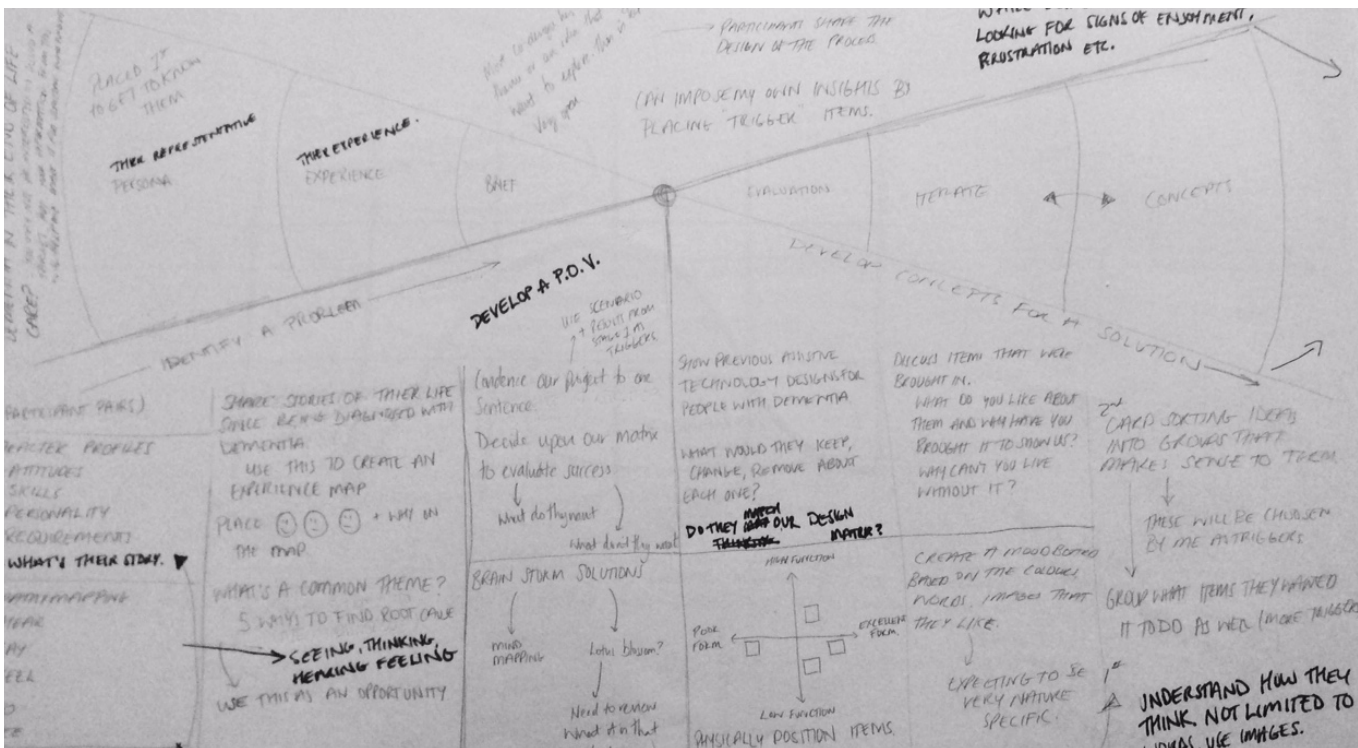 PLACED IT
TO GET TO KNOW
THEM
THIER REPRESENTATIVE
PERSONA
THIER EXPERIENCE.
EXPERIENCE
want to explore. Then it
Very open
BRIEF
PARTICIPANTS SHAPE THE
DESIGN OF THE PROCESS
CAN IMPOSE MY OWN INSIGHTS BY
PLACING "TRIGGER" ITEMS.
LOOKING FOR SIGNS OF ENJOYMENT,
FRUSTRATION ETC.
EVALUATION
ITERATE
CONCEPTS
IDENTIFY A PROBLEM
DEVELOP A P.O.V.
DEVELOP CONCEPTS FOR A SOLUTION
USE SCENARIO
+ RESULTS FROM
STAGE 1 AS
TRIGGERS
PARTICIPANT PAIRS)
PROFILES
ATTITUDES
SKILLS
PERSONALITY
REQUIREMENTS
WHAT'S THEIR STORY.
MAPPING
SHARE STORIES OF THIER LIFE
SINCE BEING DIAGNOSED WITH
DEMENTIA
USE THIS TO CREATE AN
EXPERIENCE MAP
PLACE + WHY ON
THE MAP
WHAT'S A COMMON THEME?
5 WHYS TO FIND ROOT CAUSE
SEEING, THINKING,
HEARING FEELING
USE THIS AS AN OPPORTUNITY
Condence our project to one
sentence.
Decide upon our matrix
to evaluate success
What do they want
What don't they want
BRAIN STORM SOLUTIONS
MIND
MAPPING
Lotus blossom?
Need to review
SHOW PREVIOUS ASSISTIVE
TECHNOLOGY DESIGNS FOR
PEOPLE WITH DEMENTIA
WHAT WOULD THEY KEEP,
CHANGE, REMOVE ABOUT
EACH ONE?
DO THEY MATCH OUR DESIGN
MATRIX?
HIGH FUNCTION
POOR
FORM
EXCELLENT
FORM.
LOW FUNCTION
PHYSICALLY POSITION ITEMS.
DISCUSS ITEMS THAT WERE
BROUGHT IN.
WHAT DO YOU LIKE ABOUT
THEM AND WHY HAVE YOU
BROUGHT IT TO SHOW US?
WHY CAN'T YOU LIVE
WITHOUT IT?
CREATE A MOODBOARD
BASED ON THE COLOURS
WORDS, IMAGES THAT
THEY LIKE.
EXPECTING TO BE
VERY NATURE
SPECIFIC.
2nd
CARD SORTING IDEAS
INTO GROUPS THAT
MAKES SENSE TO THEM.
THESE WILL BE CHOOSEN
BY ME AS TRIGGERS
GROUP WHAT ITEMS THEY WANTED
IT TO DO AS WELL (MORE TRIGGER
1st
UNDERSTAND HOW THEY
THINK. NOT LIMITED TO
WORDS, USE IMAGES.